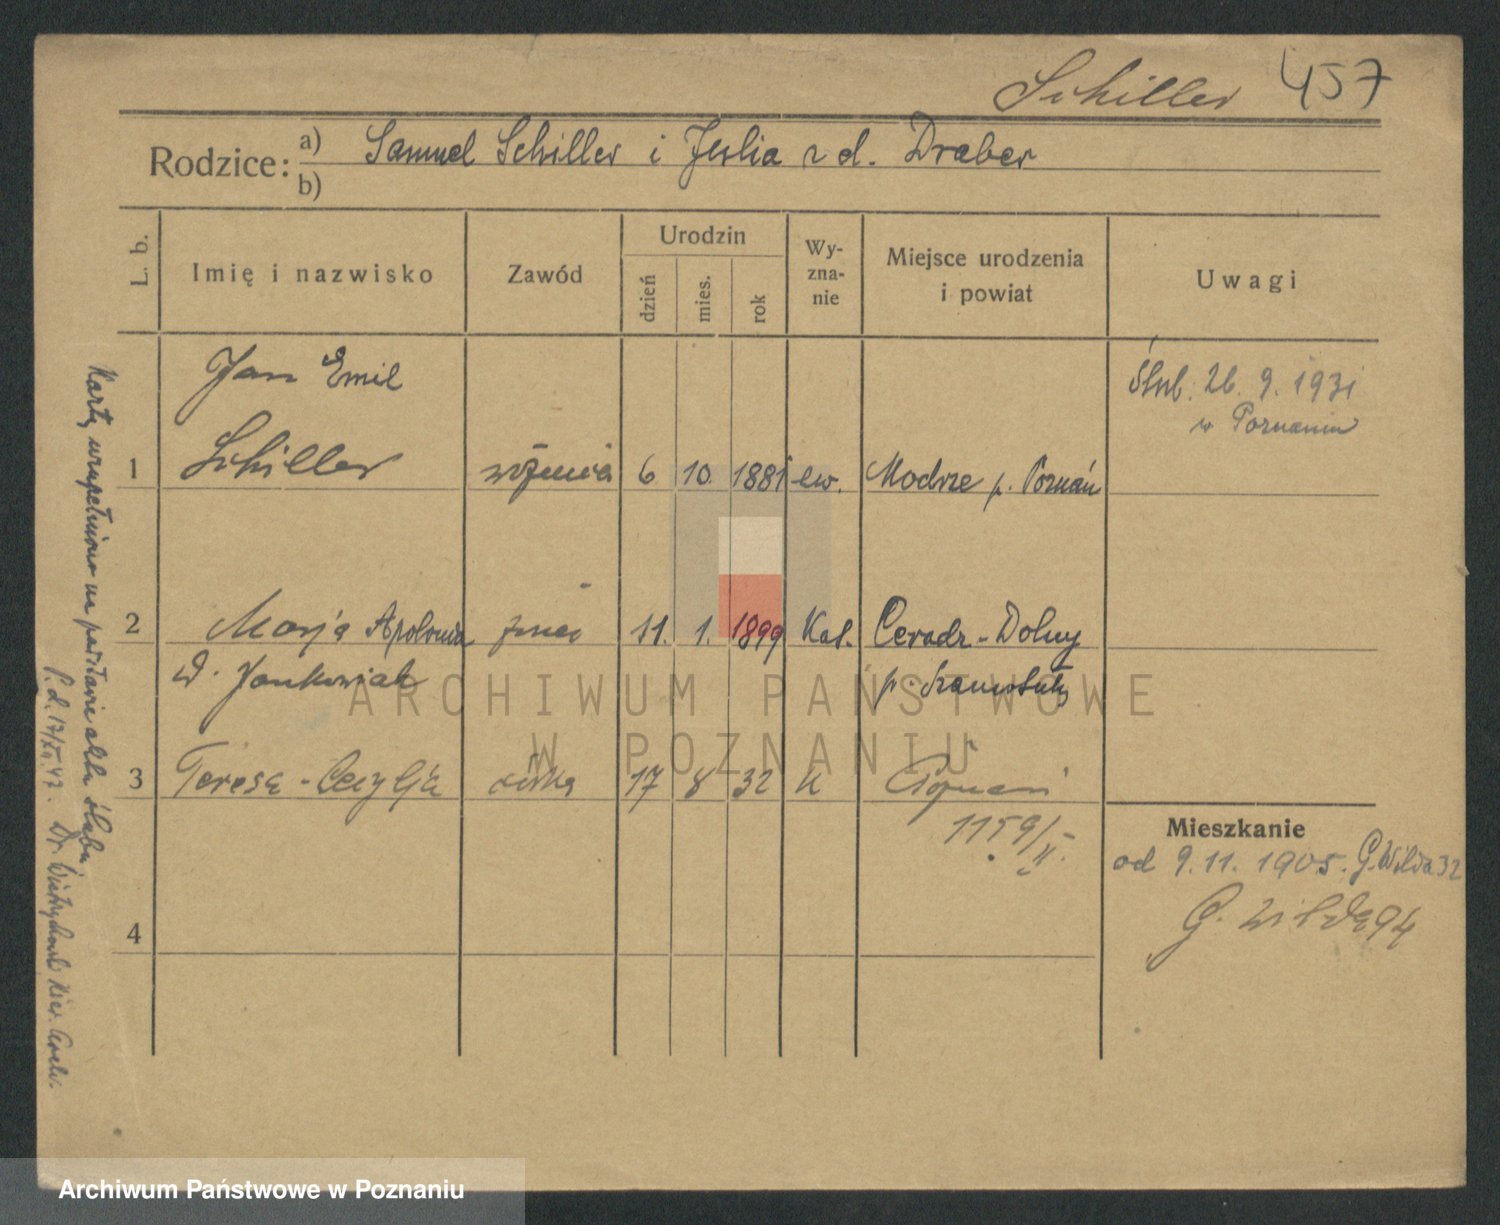 Schiller 457
Rodzice: a) Samuel Schiller i Julia z d. Draber
b)
L. b.
Imię i nazwisko
Zawód
Urodzin
dzień
mies.
rok
Wy-
zna-
nie
Miejsce urodzenia
i powiat
Uwagi
Jan Emil
Ślub: 26. 9. 1931
w Poznaniu
1 Schiller 6 10. 1881 ew. Modrze p. Poznań
2 Marja Apolonia żona 11. 1. 1899 Kat. Ceradz-Dolny
d. Jankowiak p. Szamotuły
3 Teresa-Cecylja córka 17 8 32 K Poznań
1159/II.
Mieszkanie
od 9. 11. 1905. G. Wilda 32
G. Wilda 94
4
Kartę uzupełniono na podstawie aktu ślubu.
P. d. 17/XII.47. Dr. Kier. Arch.
ARCHIWUM PAŃSTWOWE
W POZNANIU
Archiwum Państwowe w Poznaniu